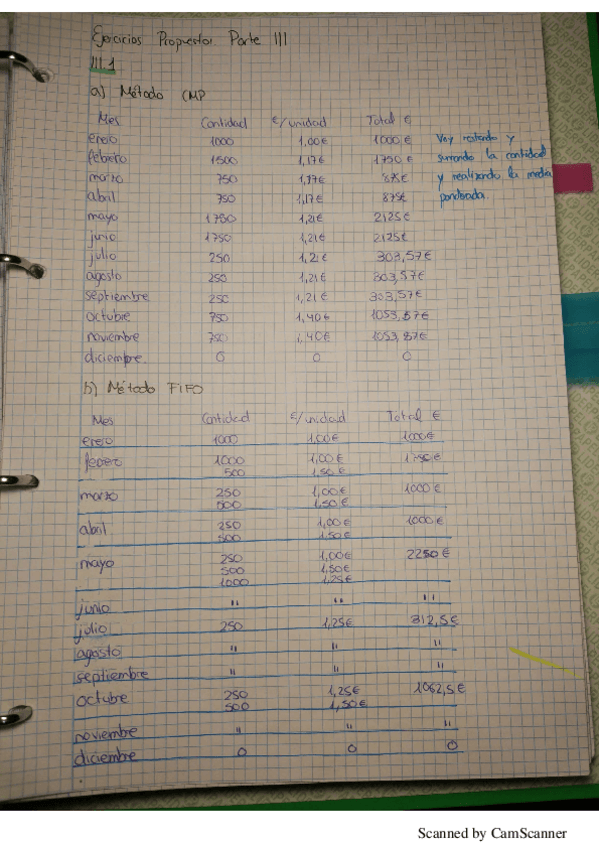 Ejercicios Propuestos Parte III
III.1
a) Método CMP
Mes Cantidad €/unidad Total €
enero 1000 1,00€ 1000€
febrero 1500 1,17€ 1750€
marzo 750 1,17€ 875€
abril 750 1,17€ 875€
mayo 1750 1,21€ 2125€
junio 1750 1,21€ 2125€
julio 250 1,21€ 303,57€
agosto 250 1,21€ 303,57€
septiembre 250 1,21€ 303,57€
octubre 750 1,40€ 1053,57€
noviembre 750 1,40€ 1053,57€
diciembre. 0 0 0
Voy restando y
sumando la cantidad
y realizando la media
ponderada.
b) Método FIFO
Mes Cantidad €/unidad Total €
enero 1000 1,00€ 1000€
febrero 1000 1,00€ 1750€
500 1,50€
marzo 250 1,00€ 1000€
500 1,50€
abril 250 1,00€ 1000€
500 1,50€
mayo 250 1,00€ 2250€
500 1,50€
1000 1,25€
junio " " "
julio 250 1,25€ 312,5€
agosto " " "
septiembre " " "
octubre 250 1,25€ 1062,5€
500 1,50€
noviembre " " "
diciembre 0 0 0
Scanned by CamScanner